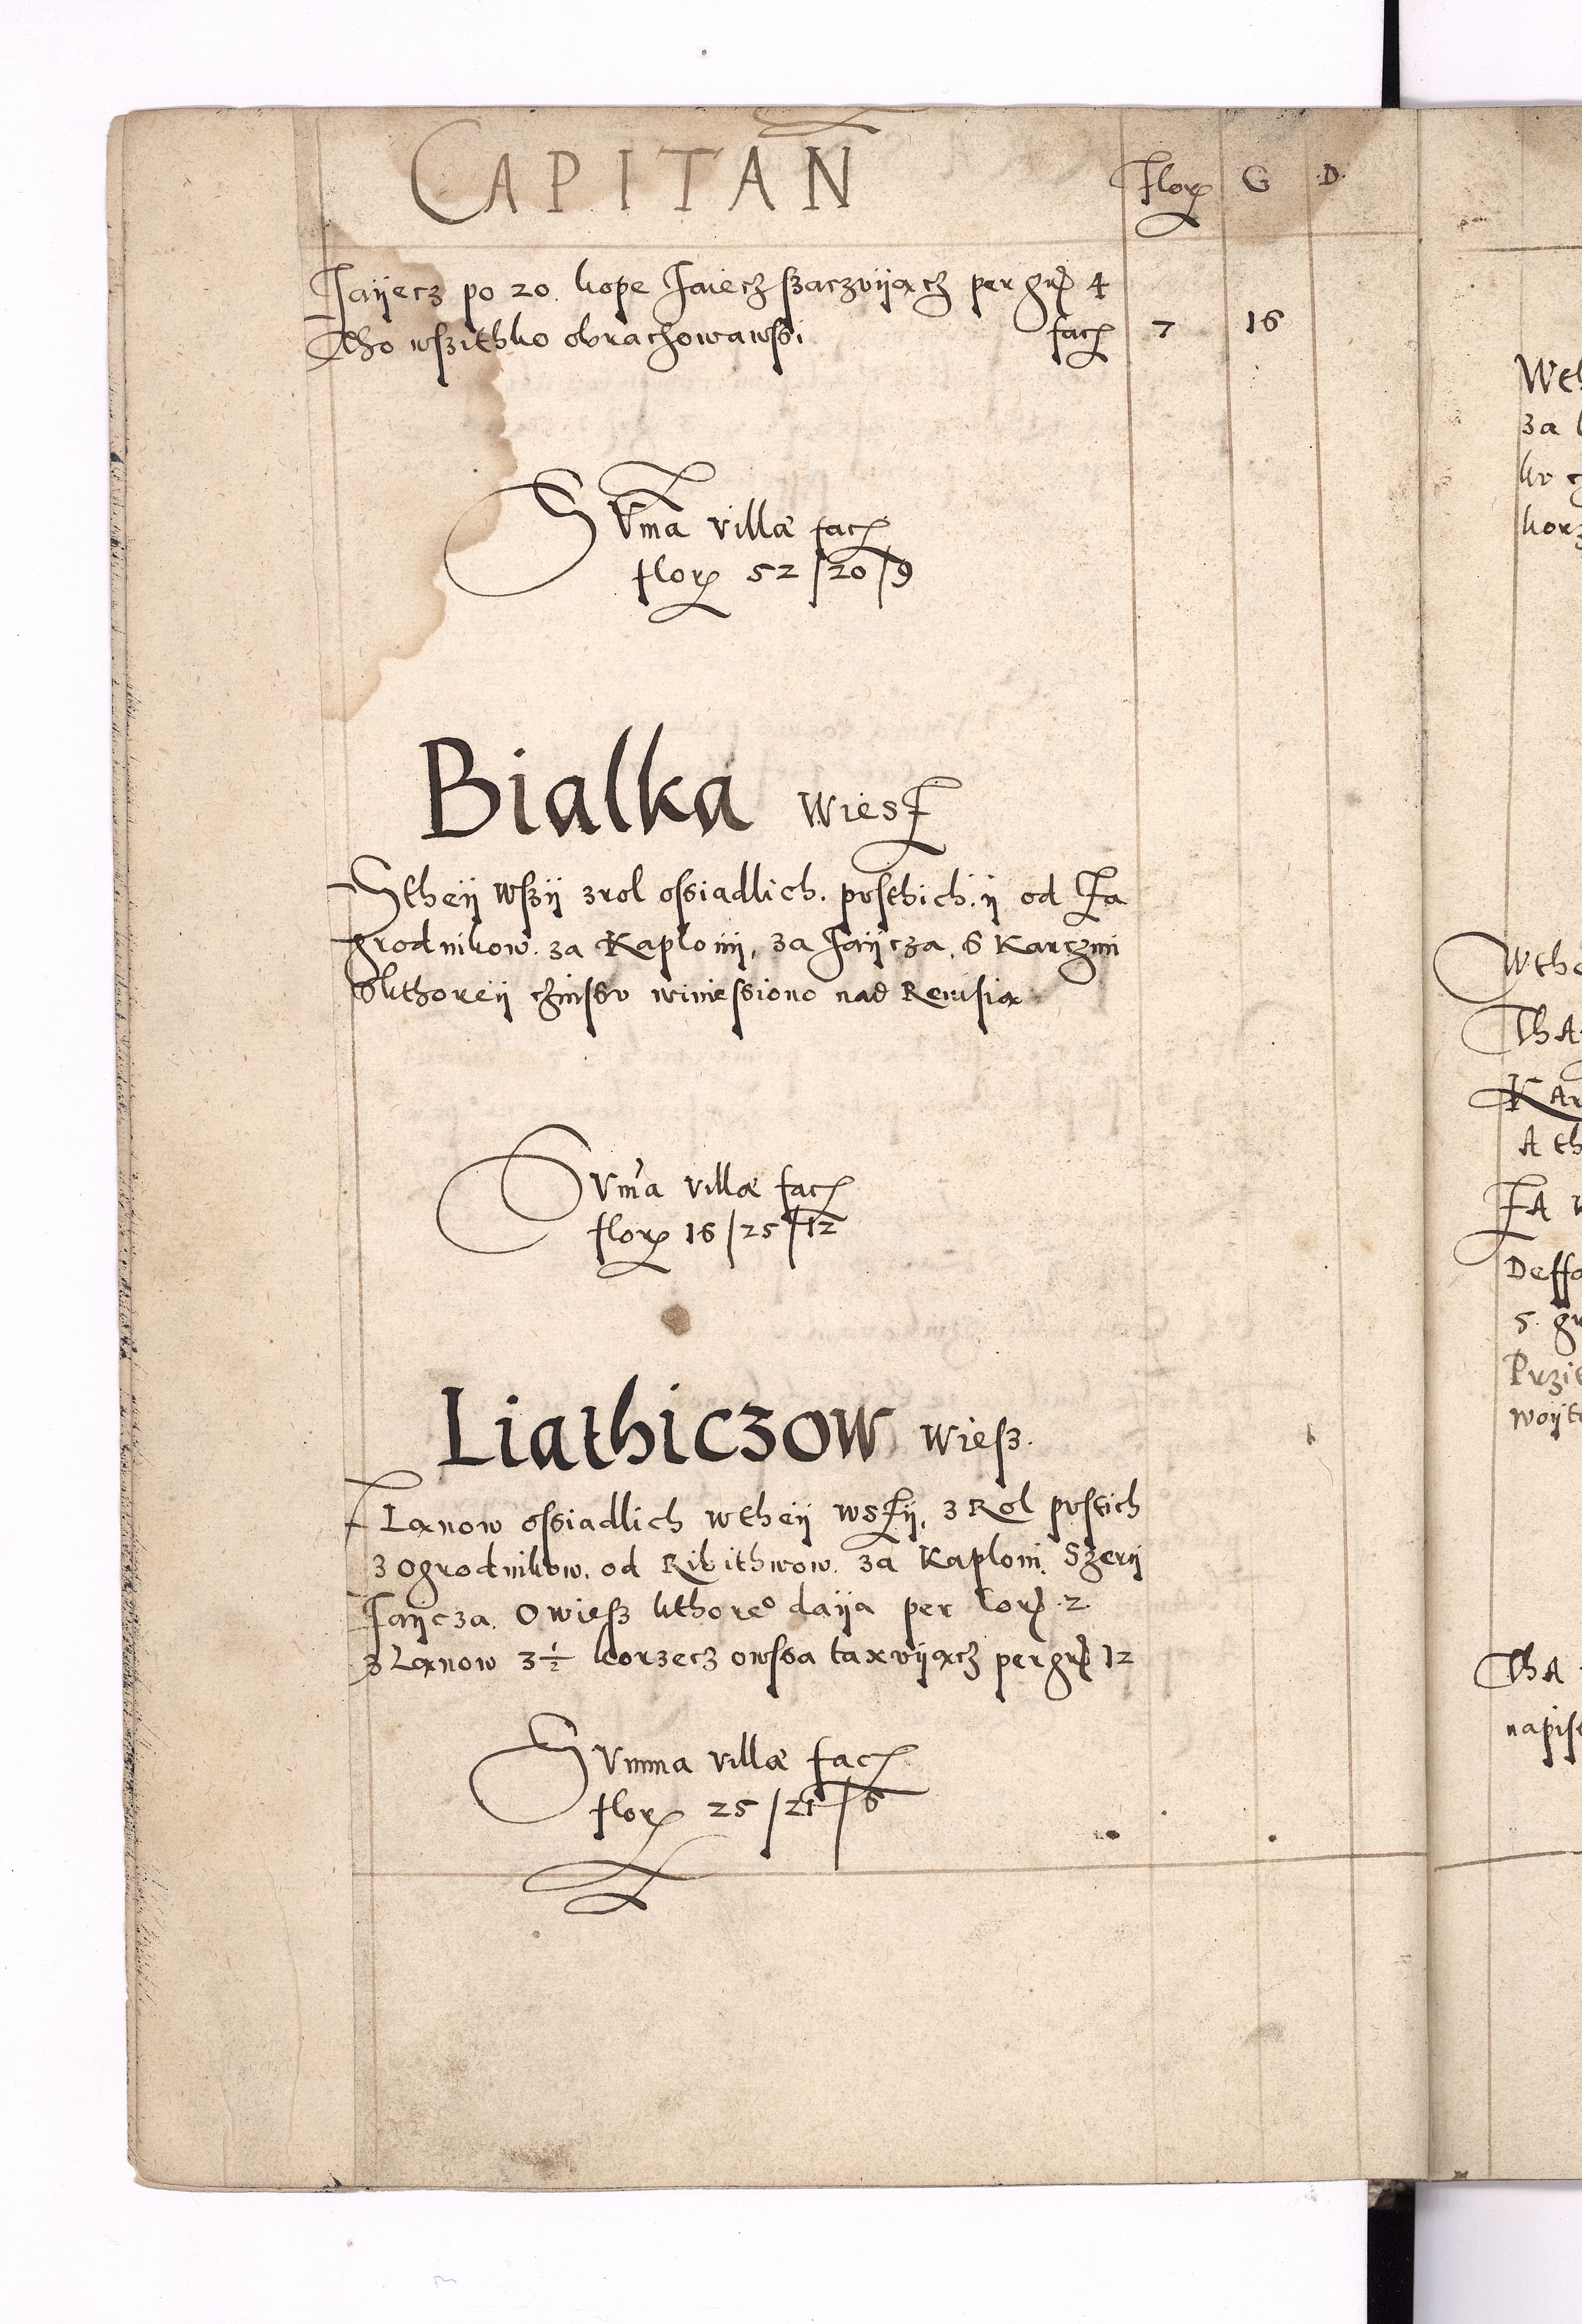 CAPITAN Flor G D
Jaÿecz po 20 kope Jaiecz szaczuÿącz per gr 4
Tho wszithko obrachowawssi fac 7 16
Suma villæ fac
flor 52/20/9
Bialka wiesz
S theÿ wsziÿ z rol ossiadlich. pusthich. ÿ od Za
grodnikow. za Kaplonÿ, za Jaÿcza, S Karczmi
S kthoreÿ czinssu winiessiono nad Reuisią
Suma villæ fac
flor 16/25/12
Liathiczow wiesz.
Z Lanow ossiadlich w theÿ wsziÿ, z Rol pustich
z ogrodnikow. od Ribithwow. za Kaploni. Szerÿ
Jaÿcza. Owiesz kthore° daÿa per kor 2
z Lanow 3 1/2 korzecz owssa taxuÿącz per gr 12
Summa villæ fac
flor 25/21/6
Weth
za
ku
korz
W the
ThA
KAr
A th
ZA
Deffa
5. gr
Przi
woÿt
ThA
napis